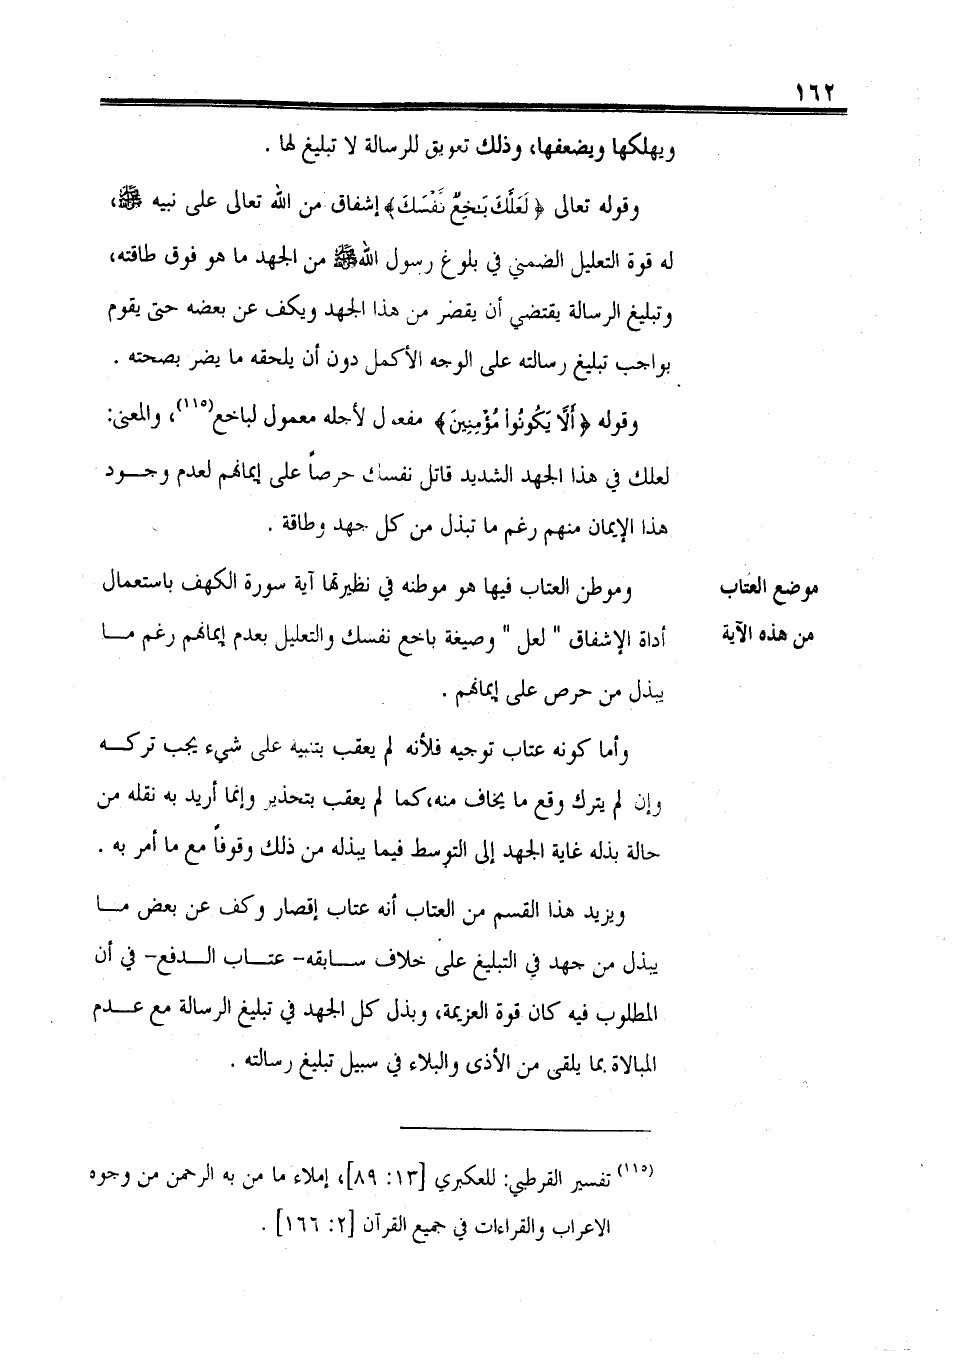 ١٦٢
ويهلكها ويضعفها، وذلك تعويق للرسالة لا تبليغ لها .
وقوله تعالى ﴿ لَعَلَّكَ بَـٰخِعٌ نَّفْسَكَ ﴾ إشفاق من الله تعالى على نبيه ﷺ،
له قوة التعليل الضمني في بلوغ رسول الله ﷺ من الجهد ما هو فوق طاقته،
وتبليغ الرسالة يقتضي أن يقصر من هذا الجهد ويكف عن بعضه حتى يقوم
بواجب تبليغ رسالته على الوجه الأكمل دون أن يلحقه ما يضر بصحته .
وقوله ﴿ أَلَّا يَكُونُوا مُؤْمِنِينَ ﴾ مفعول لأجله معمول لباخع(١١٥)، والمعنى:
لعلك في هذا الجهد الشديد قاتل نفسك حرصاً على إيمانهم لعدم وجود
هذا الإيمان منهم رغم ما تبذل من كل جهد وطاقة .
موضع العتاب
من هذه الآية
وموطن العتاب فيها هو موطنه في نظيرتها آية سورة الكهف باستعمال
أداة الإشفاق " لعل " وصيغة باخع نفسك والتعليل بعدم إيمانهم رغم ما
يبذل من حرص على إيمانهم .
وأما كونه عتاب توجيه فلأنه لم يعقب بتنبيه على شيء يجب تركه
وإن لم يترك وقع ما يخاف منه، كما لم يعقب بتحذير وإنما أريد به نقله من
حالة بذله غاية الجهد إلى التوسط فيما يبذله من ذلك وقوفاً مع ما أمر به .
ويزيد هذا القسم من العتاب أنه عتاب إقصار وكف عن بعض ما
يبذل من جهد في التبليغ على خلاف سابقه- عتاب الدفع- في أن
المطلوب فيه كان قوة العزيمة، وبذل كل الجهد في تبليغ الرسالة مع عدم
المبالاة بما يلقى من الأذى والبلاء في سبيل تبليغ رسالته .
(١١٥) تفسير القرطبي: للعكبري [١٣: ٨٩]، إملاء ما من به الرحمن من وجوه
الاعراب والقراءات في جميع القرآن [٢: ١٦٦] .